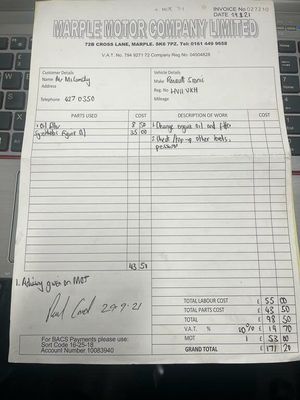 INVOICE No 027210
DATE 29.9.21
MARPLE MOTOR COMPANY LIMITED
72B CROSS LANE, MARPLE. SK6 7PZ. Tel: 0161 449 9658
V.A.T. No. 794 9271 72 Company Reg No. 04504828
Customer Details
Name Mr McConelly
Address
Telephone 427 0350
Vehicle Details
Make Renault Scenic
Reg. No HV11 VKH
Mileage
PARTS USED COST DESCRIPTION OF WORK COST
1 Oil filter 8 50
35 00
1 Change engine oil and filter
2 Check / top-up other levels,
43 50
1. Advisory given on MOT
29-9-21
TOTAL LABOUR COST £ 55 00
TOTAL PARTS COST £ 43 50
TOTAL £ 98 50
V.A.T. % 20% £ 19 70
MOT 1 £ 53 00
GRAND TOTAL £ 171 20
For BACS Payments please use:
Sort Code 16-25-18
Account Number 10083940